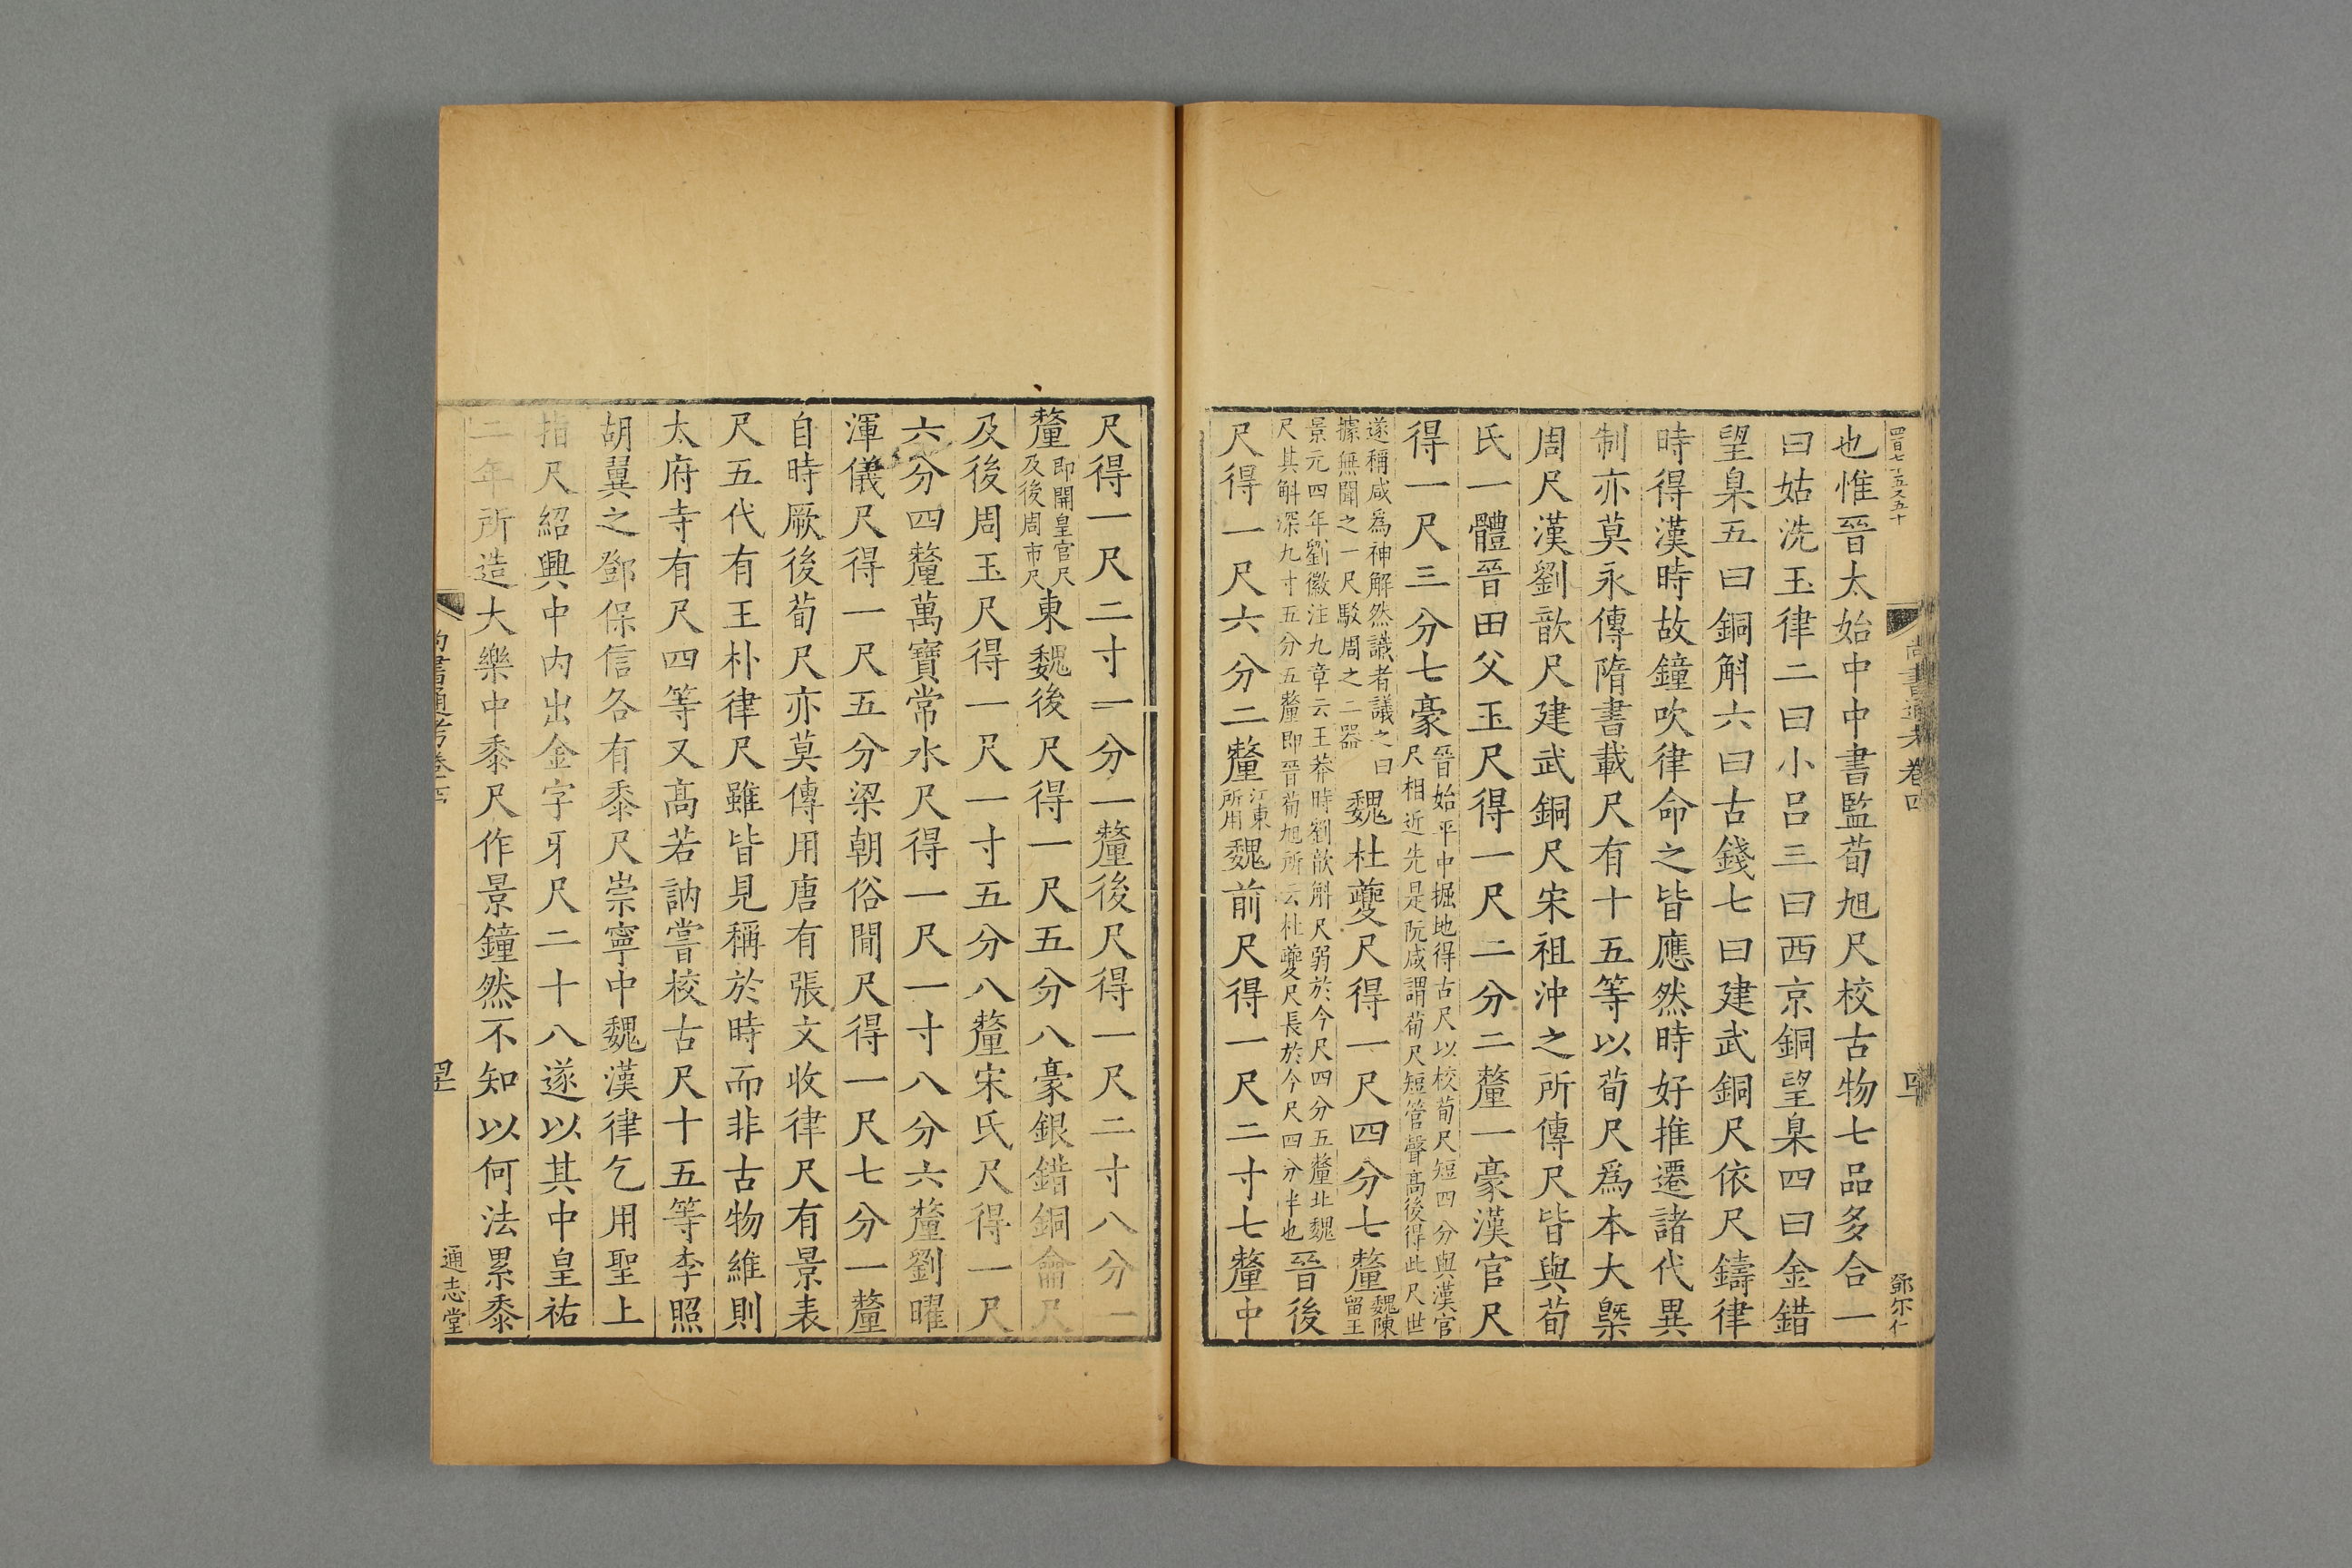 四百七十五又五十
尚書通考卷四
鄧尔仁
也惟晉太始中中書監荀旭尺校古物七品多合一
曰姑洗玉律二曰小呂三曰西京銅望臬四曰金錯
望臬五曰銅斛六曰古錢七曰建武銅尺依尺鑄律
時得漢時故鐘吹律命之皆應然時好推遷諸代異
制亦莫永傳隋書載尺有十五等以荀尺爲本大槩
周尺漢劉歆尺建武銅尺宋祖沖之所傳尺皆與荀
氏一體晉田父玉尺得一尺二分二釐一豪漢官尺
得一尺三分七豪晉始平中掘地得古尺以校荀尺短四分與漢官尺相近先是阮咸謂荀尺短管聲高後得此尺世
遂稱咸爲神解然議者議之曰據無聞之一尺駮周之二器魏杜夔尺得一尺四分七釐魏陳留王
景元四年劉徽注九章云王莽時劉歆斛尺弱於今尺四分五釐北魏尺其斛深九寸五分五釐即晉荀旭所云杜夔尺長於今尺四分半也晉後
尺得一尺六分二釐江東所用魏前尺得一尺二寸七釐中
尺得一尺二寸一分一釐後尺得一尺二寸八分一
釐即開皇官尺及後周市尺東魏後尺得一尺五分八豪銀錯銅龠尺
及後周玉尺得一尺一寸五分八釐宋氏尺得一尺
六分四釐萬寶常水尺得一尺一寸八分六釐劉曜
渾儀尺得一尺五分梁朝俗間尺得一尺七分一釐
自時厥後荀尺亦莫傳用唐有張文收律尺有景表
尺五代有王朴律尺雖皆見稱於時而非古物維則
太府寺有尺四等又高若訥嘗校古尺十五等李照
胡翼之鄧保信各有黍尺崇寧中魏漢律乞用聖上
指尺紹興中內出金字牙尺二十八遂以其中皇祐
二年所造大樂中黍尺作景鐘然不知以何法累黍
通志堂